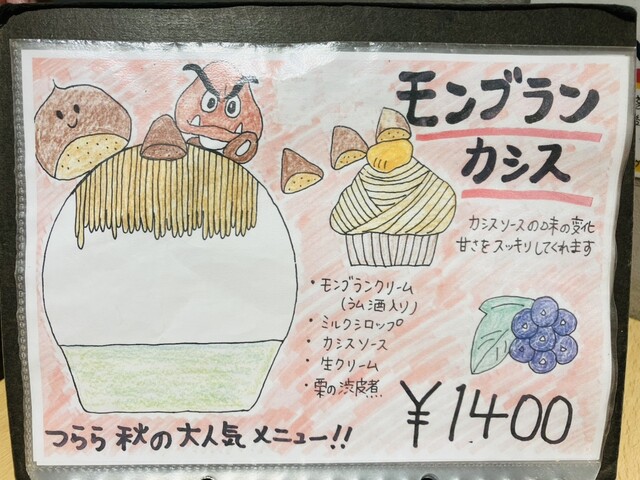 モンブラン
カシス
カシスソースの味の変化
甘さをスッキリしてくれます
・モンブランクリーム
(ラム酒入り)
・ミルクシロップ
・カシスソース
・生クリーム
・栗の渋皮煮
¥1.400
つらら 秋の大人気メニュー!!